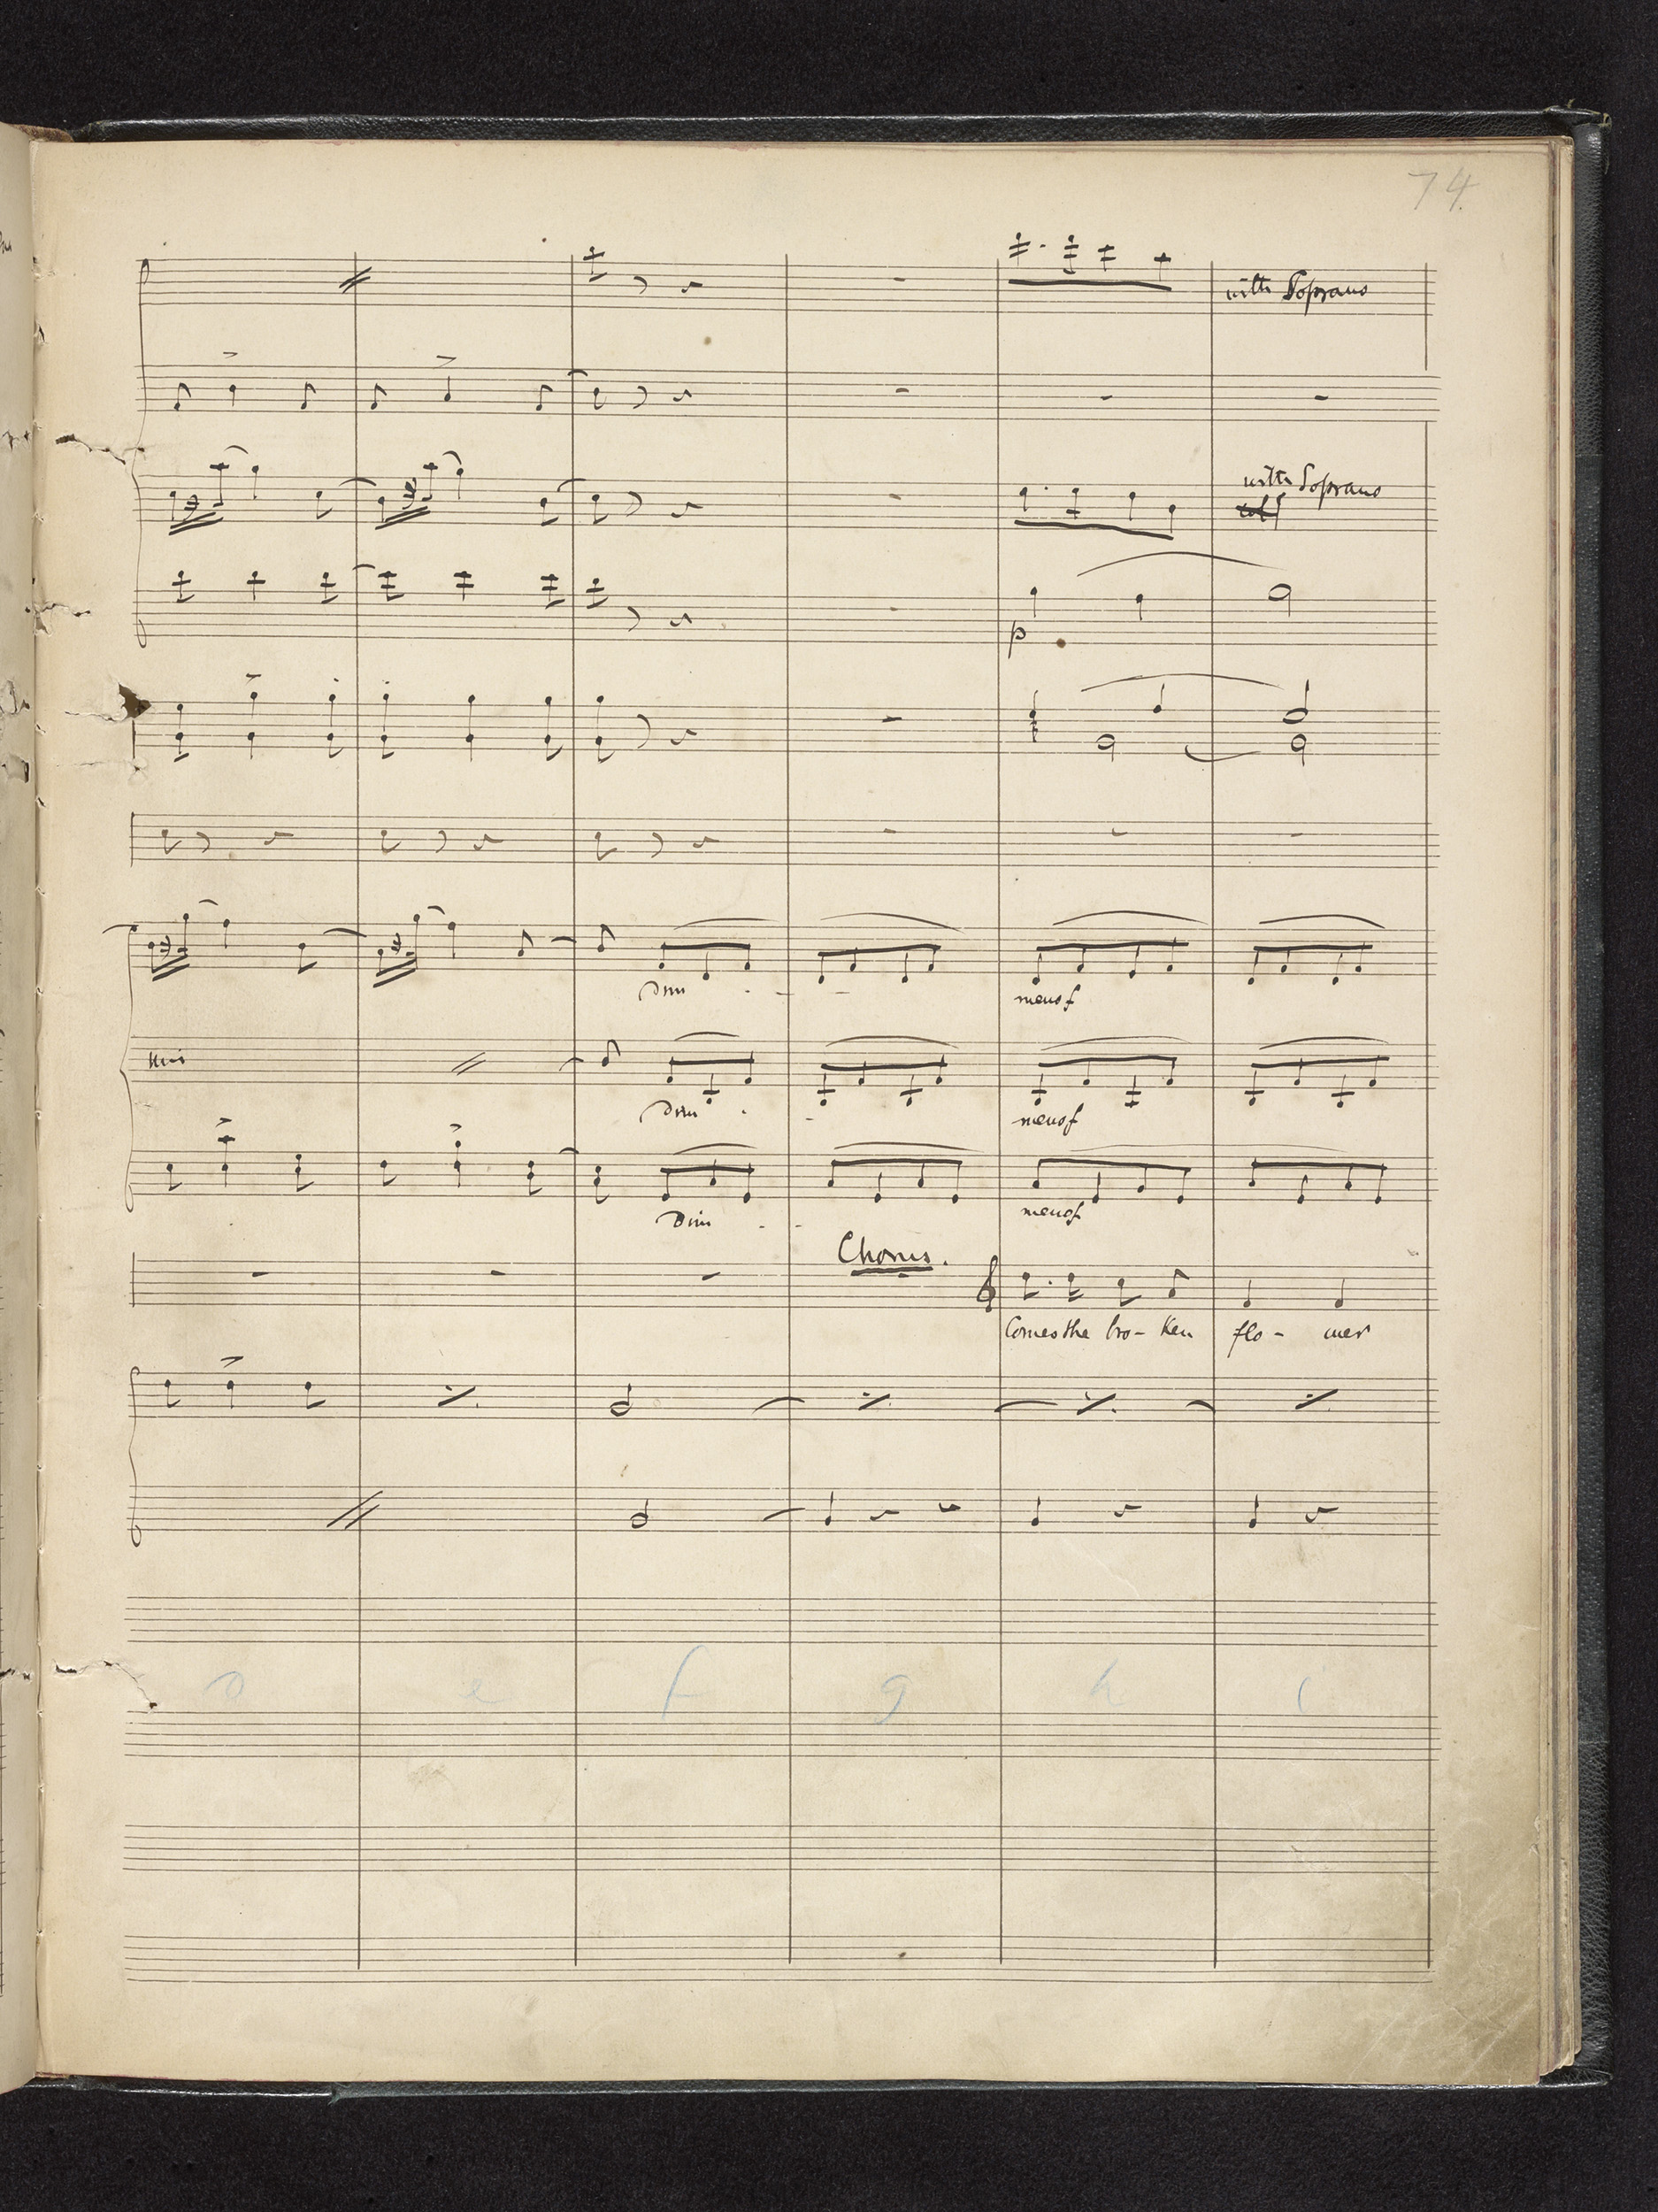 74.
with Soprano
with Soprano
p
Dim - - -
meno f
unis
Dim - -
meno f
Dim - -
meno f
Chorus.
Comes the bro- ken flo- wer
d e f g h i